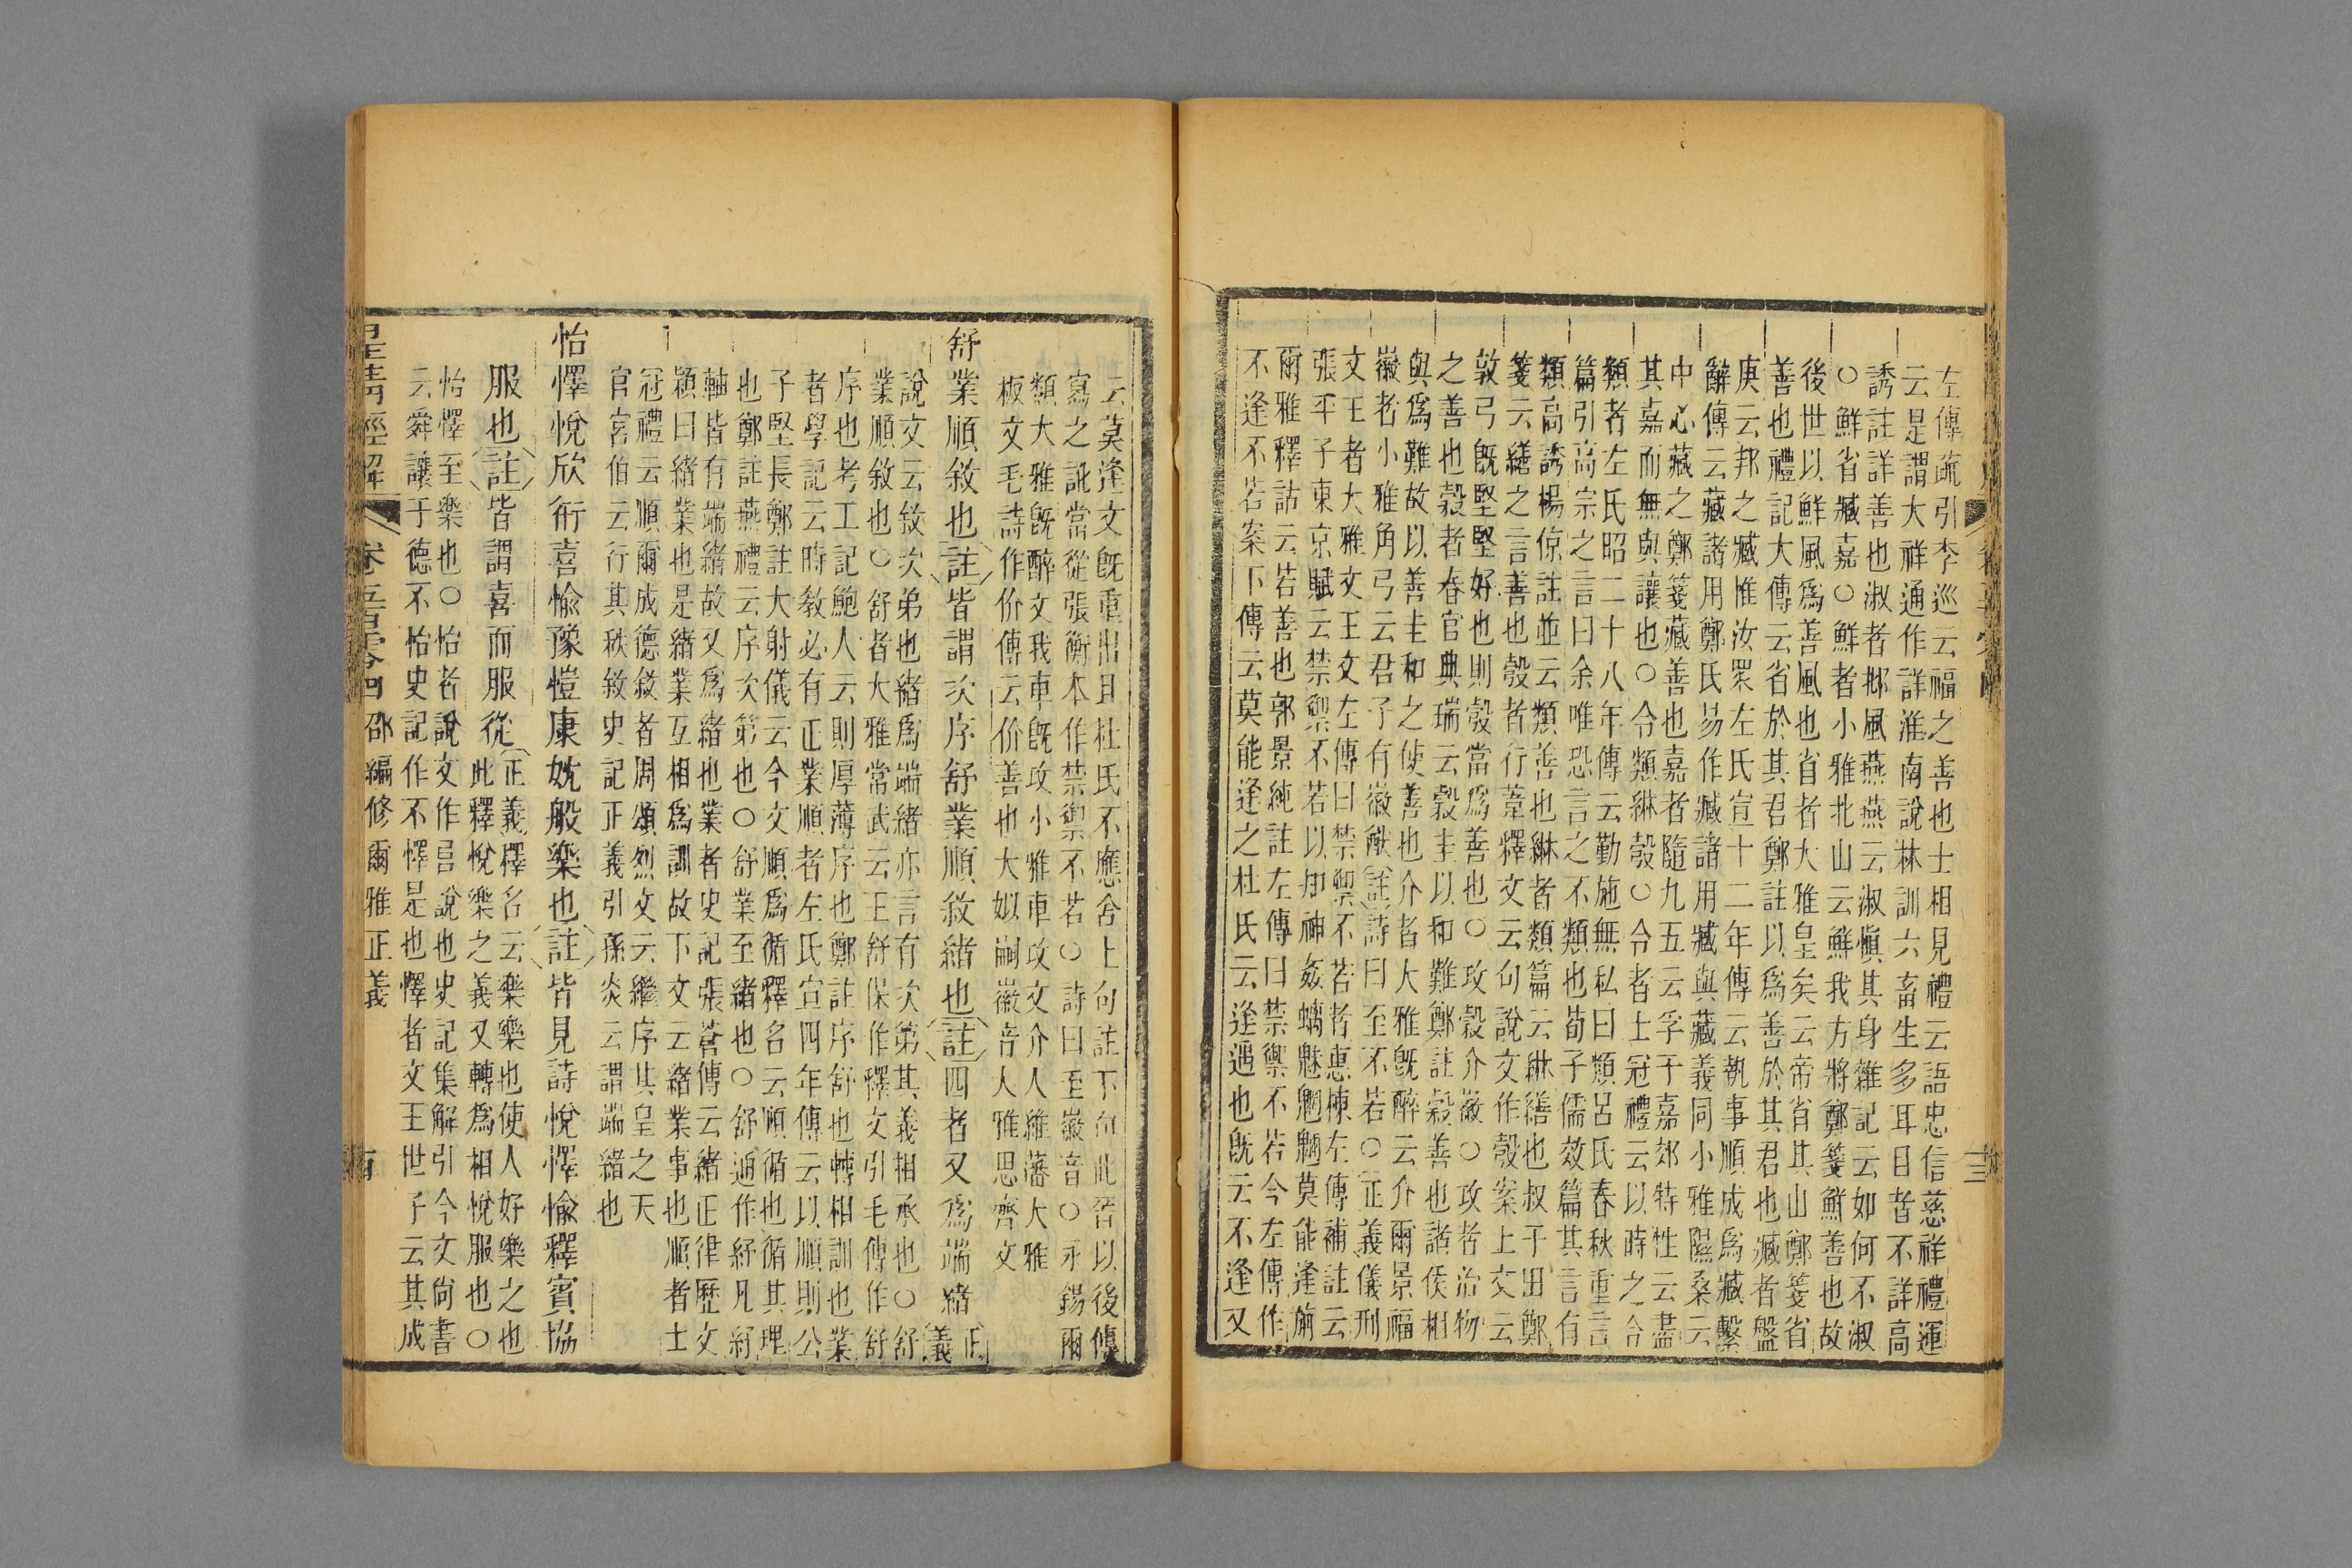 左傳疏引李巡云福之善也士相見禮云語忠信慈祥禮運
云是謂大祥通作詳淮南說林訓六畜生多耳目者不詳高
誘註詳善也淑者邶風燕燕云淑愼其身雜記云如何不淑
○鮮省臧嘉○鮮者小雅北山云鮮我方將鄭箋鮮善也故
後世以鮮風爲善風也省者大雅皇矣云帝省其山鄭箋省
善也禮記大傳云省於其君鄭註以爲善於其君也臧者盤
庚云邦之臧惟汝眾左氏宣十二年傳云執事順成爲臧繫
辭傳云藏諸用鄭氏易作臧諸用臧與藏義同小雅隰桑云
中心藏之鄭箋藏善也嘉者隨九五云孚于嘉郊特牲云盡
其嘉而無與讓也○令類綝彀○令者士冠禮云以時之令
類者左氏昭二十八年傳云勤施無私曰類呂氏春秋重言
篇引高宗之言曰余唯恐言之不類也荀子儒效篇其言有
類高誘楊倞註並云類善也綝者類篇云綝繕也叔于田鄭
箋云繕之言善也彀者行葦釋文云句說文作彀案上文云
敦弓旣堅堅好也則彀當爲善也○攻穀介徽○攻者治物
之善也穀者春官典瑞云穀圭以和難鄭註穀善也諸侯相
與爲難故以善圭和之使善也介者大雅旣醉云介爾景福
徽者小雅角弓云君子有徽猷註詩曰至不若○正義儀刑
文王者大雅文王文左傳曰禁禦不若者惠棟左傳補註云
張平子東京賦云禁禦不若以知神姦螭魅魍魎莫能逢旃
爾雅釋詁云若善也郭景純註左傳曰禁禦不若今左傳作
不逢不若案下傳云莫能逢之杜氏云逢遇也旣云不逢又
云莫逢文旣重出且杜氏不應舍上句註下句此晉以後傳
寫之訛當從張衡本作禁禦不若○詩曰至徽音○永錫爾
類大雅旣醉文我車旣攻小雅車攻文介人維藩大雅
板文毛詩作价傳云价善也大姒嗣徽音大雅思齊文
舒業順敘也註皆謂次序舒業順敘緒也註四者又爲端緒正義
說文云敘次弟也緒爲端緒亦言有次第其義相承也○舒
業順敘也○舒者大雅常武云王舒保作釋文引毛傳作舒
序也考工記鮑人云則厚薄序也鄭註序舒也轉相訓也業
者學記云時敎必有正業順者左氏宣四年傳云以順則公
子堅長鄭註大射儀云今文順爲循釋名云順循也循其理
也鄭註燕禮云序次第也○舒業至緒也○舒通作紓凡紓
軸皆有端緒故又爲緒也業者史記張蒼傳云緒正律歷文
穎曰緒業也是緒業互相爲訓故下文云緒業事也順者士
冠禮云順爾成德敘者周頌烈文云繼序其皇之天
官宮伯云行其秩敘史記正義引孫炎云謂端緒也
怡懌悅欣衎喜愉豫愷康妉般樂也註皆見詩悅懌愉釋賓協
服也註皆謂喜而服從正義釋名云樂樂也使人好樂之也
此釋悅樂之義又轉爲相悅服也○
怡懌至樂也○怡者說文作台說也史記集解引今文尙書
云舜讓于德不怡史記作不懌是也懌者文王世子云其成
皇淸經解 卷五百零四 邵編修爾雅正義